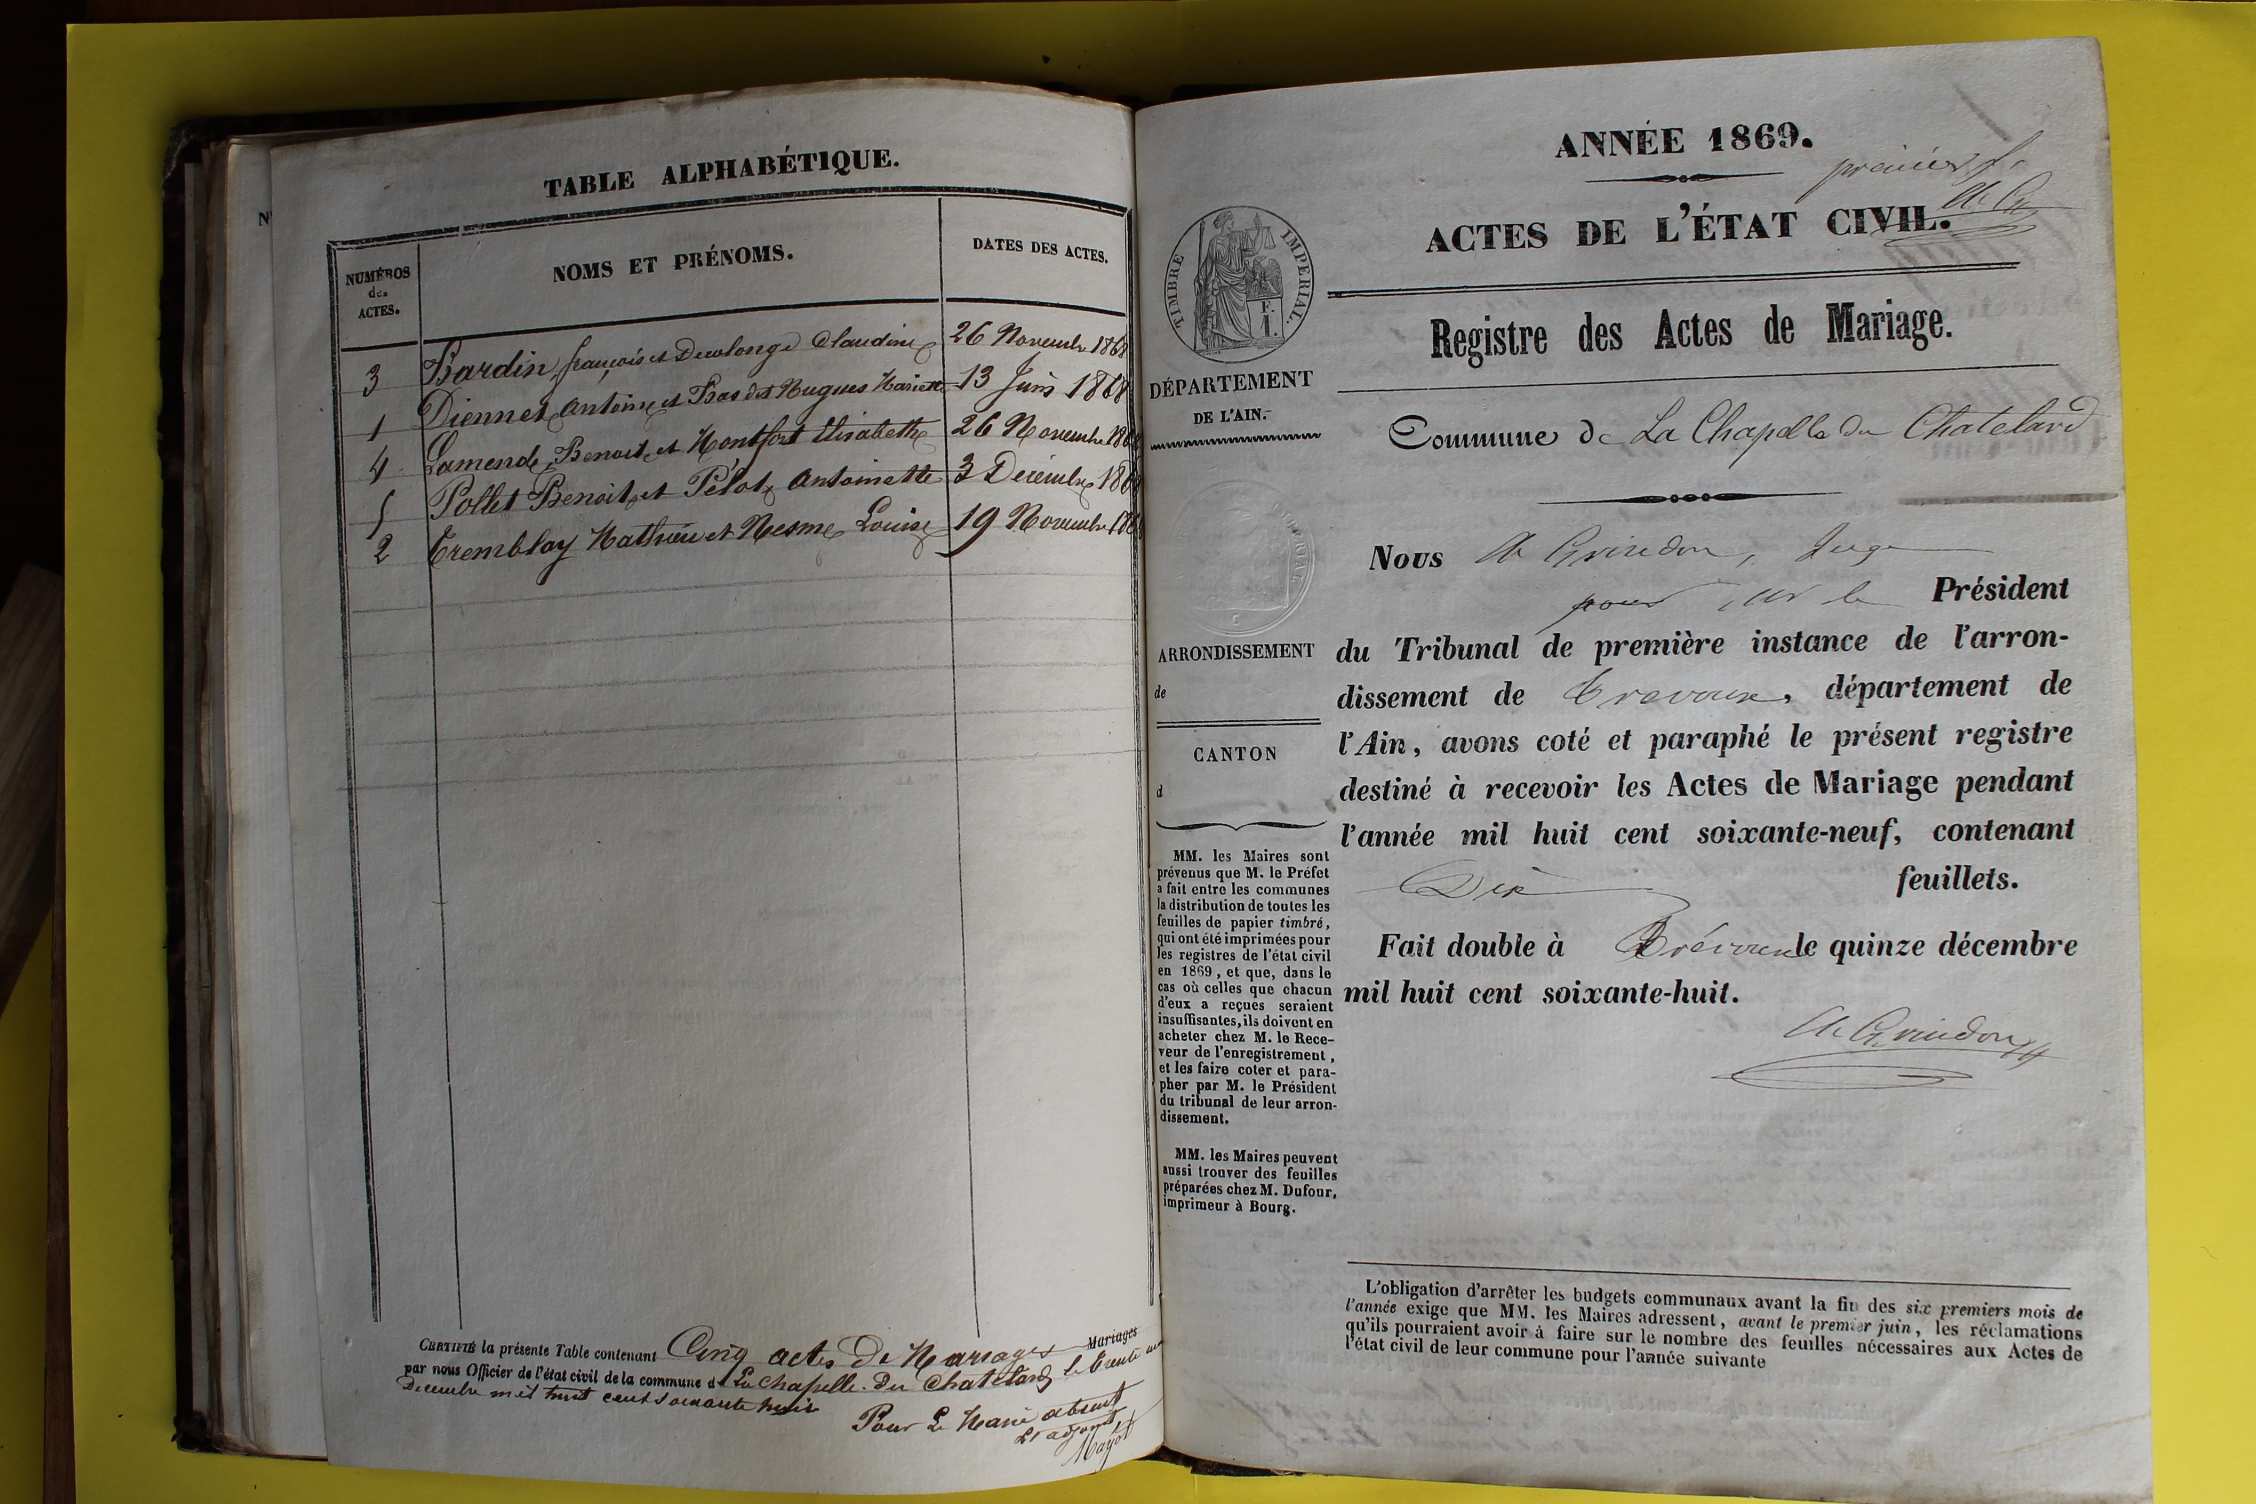 TABLE ALPHABÉTIQUE.
NUMÉROS
des
ACTES.
NOMS ET PRÉNOMS.
DATES DES ACTES.
3 Bardin, françois et Decolonge Claudine 26 Novembre 1868
1 Diennet Antoine et Bas dit Hugues Mariette 13 Juin 1868
4 Lamende Benoit et Montfort Elisabeth 26 Novembre 1868
5 Pollet Benoit et Pélot Antoinette 3 Décembre 1868
2 Tremblay Mathieu et Mesme Louise 19 Novembre 1868
CERTIFIÉ la présente Table contenant Cinq actes De Mariages Mariages
par nous Officier de l'état civil de la commune d La Chapelle du Chatelard le trente un
Decembre mil huit cent soixante huit
Pour Le Maire absent
L'adjoint
Mayot
ANNÉE 1869.
premier f.
ACTES DE L'ÉTAT CIVIL.
TIMBRE IMPERIAL.
Registre des Actes de Mariage.
DÉPARTEMENT
DE L'AIN.
Commune de La Chapelle du Chatelard
Nous A Grindon, Juge
pour le Président
du Tribunal de première instance de l'arron-
dissement de Trevoux, département de
l'Ain, avons coté et paraphé le présent registre
destiné à recevoir les Actes de Mariage pendant
l'année mil huit cent soixante-neuf, contenant
Dix feuillets.
Fait double à Trévoux le quinze décembre
mil huit cent soixante-huit.
A Grindon
ARRONDISSEMENT
de
CANTON
d
MM. les Maires sont
prévenus que M. le Préfet
a fait entre les communes
la distribution de toutes les
feuilles de papier timbré,
qui ont été imprimées pour
les registres de l'état civil
en 1869, et que, dans le
cas où celles que chacun
d'eux a reçues seraient
insuffisantes, ils doivent en
acheter chez M. le Rece-
veur de l'enregistrement,
et les faire coter et para-
pher par M. le Président
du tribunal de leur arron-
dissement.
MM. les Maires peuvent
aussi trouver des feuilles
préparées chez M. Dufour,
imprimeur à Bourg.
L'obligation d'arrêter les budgets communaux avant la fin des six premiers mois de
l'année exige que MM. les Maires adressent, avant le premier juin, les réclamations
qu'ils pourraient avoir à faire sur le nombre des feuilles nécessaires aux Actes de
l'état civil de leur commune pour l'année suivante